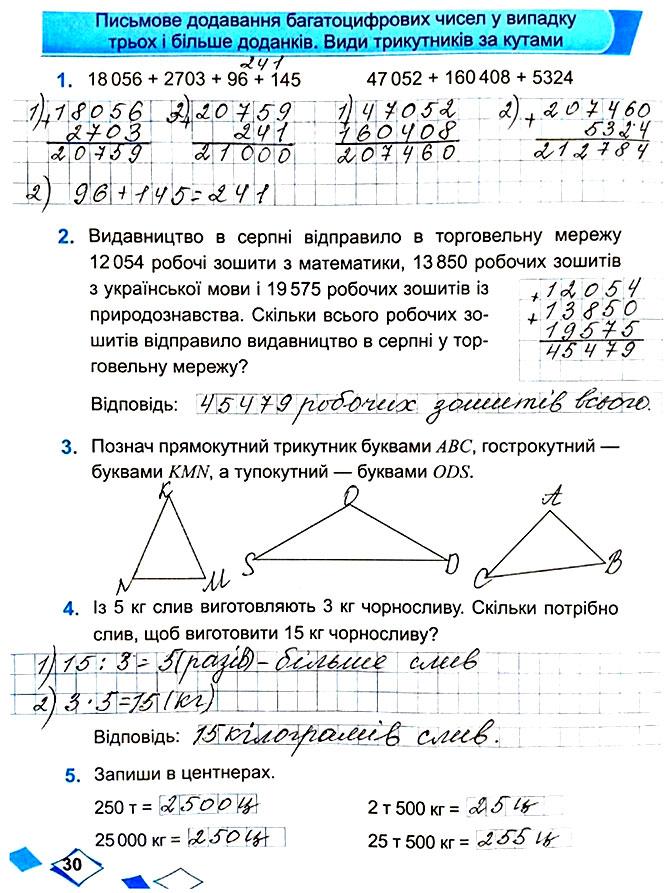 Письмове додавання багатоцифрових чисел у випадку
трьох і більше доданків. Види трикутників за кутами
241
1. 18 056 + 2703 + 96 + 145 47 052 + 160 408 + 5324
1) +18056 2) +20759 1) +47052 2) +207460
2703 241 160408 5324
20759 21000 207460 212784
2) 96+145=241
2. Видавництво в серпні відправило в торговельну мережу
12 054 робочі зошити з математики, 13 850 робочих зошитів
з української мови і 19 575 робочих зошитів із
природознавства. Скільки всього робочих зо-
шитів відправило видавництво в серпні у тор-
говельну мережу?
+12054
+13850
19575
45479
Відповідь: 45479 робочих зошитів всього.
3. Познач прямокутний трикутник буквами ABC, гострокутний —
буквами KMN, а тупокутний — буквами ODS.
K O A
N M S D C B
4. Із 5 кг слив виготовляють 3 кг чорносливу. Скільки потрібно
слив, щоб виготовити 15 кг чорносливу?
1) 15 : 3 = 5 (разів) – більше слив
2) 3 · 5 = 15 (кг)
Відповідь: 15 кілограмів слив.
5. Запиши в центнерах.
250 т = 2500 ц 2 т 500 кг = 25 ц
25 000 кг = 250 ц 25 т 500 кг = 255 ц
30